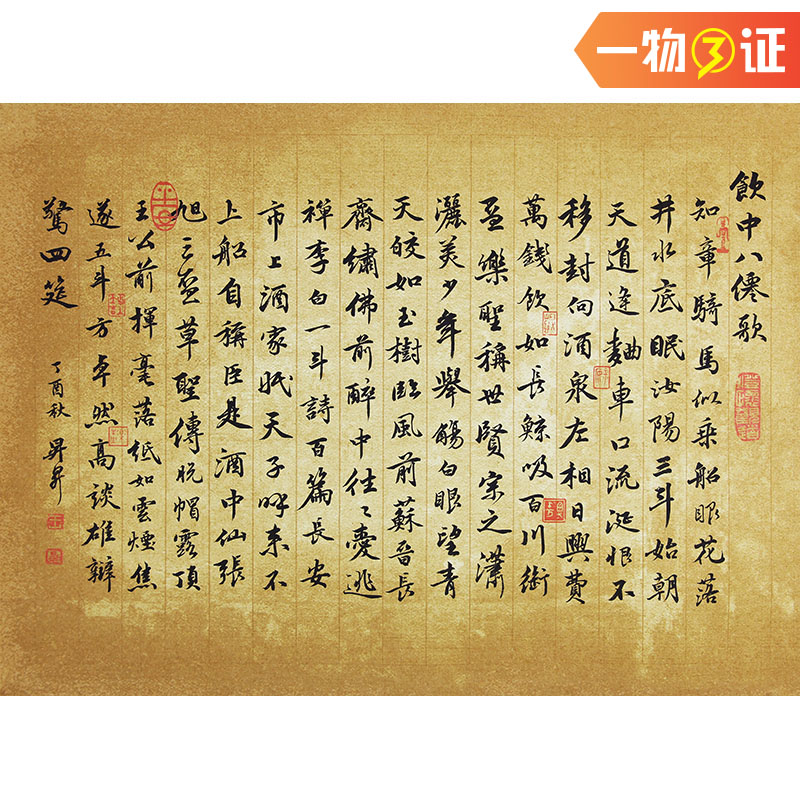 一物3证
飲中八僊歌
知章騎馬似乘船眼花落
井水底眠汝陽三斗始朝
天道逢麯車口流涎恨不
移封向酒泉左相日興費
萬錢飲如長鯨吸百川銜
盃樂聖稱世賢宗之瀟
灑美少年舉觴白眼望青
天皎如玉樹臨風前蘇晉長
齋繡佛前醉中往〻愛逃
禪李白一斗詩百篇長安
市上酒家眠天子呼來不
上船自稱臣是酒中仙張
旭三盃草聖傳脫帽露頂
王公前揮毫落紙如雲煙焦
遂五斗方卓然高談雄辯
驚四筵
丁酉秋